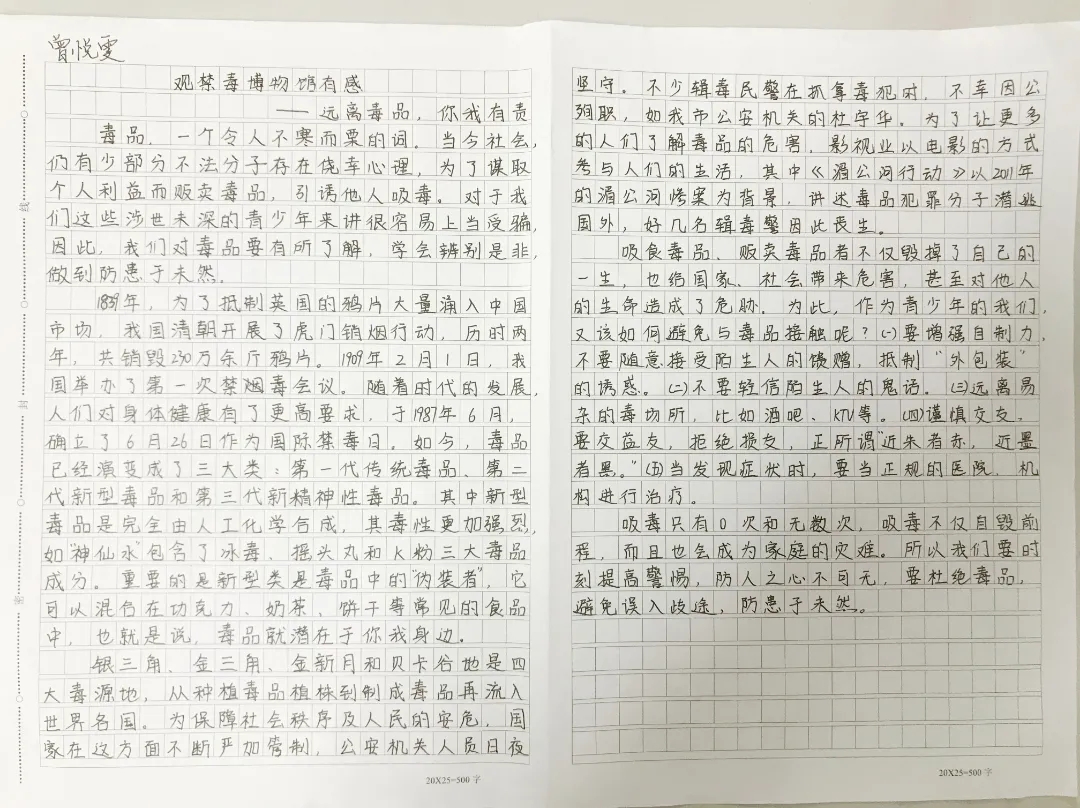 曾悦雯
观禁毒博物馆有感
——远离毒品，你我有责
毒品，一个令人不寒而栗的词。当今社会，
们有少部分不法分子存在侥幸心理，为了谋取
个人利益而贩卖毒品，引诱他人吸毒。对于我
们这些涉世未深的青少年来讲很容易上当受骗，
因此，我们对毒品要有所了解，学会辨别是非，
做到防患于未然。
1839年，为了抵制英国的鸦片大量涌入中国
市场，我国清朝开展了虎门销烟行动，历时两
年，共销毁230万余斤鸦片。1909年2月1日，我
国举办了第一次禁烟毒会议。随着时代的发展，
人们对身体健康有了更高要求，于1987年6月，
确立了6月26日作为国际禁毒日。如今，毒品
已经演变成了三大类：第一代传统毒品、第二
代新型毒品和第三代新精神性毒品。其中新型
毒品是完全由人工化学合成，其毒性更加强烈，
如“神仙水”包含了冰毒、摇头丸和K粉三大毒品
成分。重要的是新型类是毒品中的“伪装者”，它
可以混合在巧克力、奶茶、饼干等常见的食品
中，也就是说，毒品就潜在于你我身边。
银三角、金三角、金新月和贝卡谷地是四
大毒源地，从种植毒品植株到制成毒品再流入
世界各国。为保障社会秩序及人民的安危，国
家在这方面不断严加管制，公安机关人员日夜
坚守。不少缉毒民警在抓拿毒犯时，不幸因公
殉职，如我市公安机关的杜宇华。为了让更多
的人们了解毒品的危害，影视业以电影的方式
参与人们的生活，其中《湄公河行动》以2011年
的湄公河惨案为背景，讲述毒品犯罪分子潜逃
国外，好几名缉毒警因此丧生。
吸食毒品、贩卖毒品者不仅毁掉了自己的
一生，也给国家、社会带来危害，甚至对他人
的生命造成了危胁。为此，作为青少年的我们，
又该如何避免与毒品接触呢？㈠要增强自制力，
不要随意接受陌生人的馈赠，抵制“外包装”
的诱惑。㈡不要轻信陌生人的鬼话。㈢远离易
杂的毒场所，比如酒吧、KTV等。㈣谨慎交友，
要交益友，拒绝损友，正所谓“近朱者赤，近墨
者黑。”㈤当发现症状时，要当正规的医院，机
构进行治疗。
吸毒只有0次和无数次，吸毒不仅自毁前
程，而且也会成为家庭的灾难。所以我们要时
刻提高警惕，防人之心不可无，要杜绝毒品，
避免误入歧途，防患于未然。
20X25=500 字
20X25=500 字
线
封
密